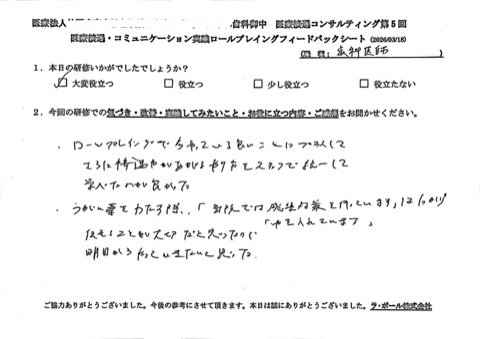 医療法人 歯科御中 医療接遇コンサルティング第5回
医療接遇・コミュニケーション実践ロールプレイングフィードバックシート (2026/03/18)
(職種: 歯科医師 )
1. 本日の研修いかがでしたでしょうか?
☑ 大変役立つ □ 役立つ □ 少し役立つ □ 役立たない
2. 今回の研修での気づき・改善・実践してみたいこと・お役に立つ内容・ご感想をお聞かせください。
・ロールプレイングで今やっている良いことにプラスして
さらに待遇 があがるやり方をスタッフで統一して
学べたのが良かった
・うがい薬を わたす時、「当院では 殺 薬を使っています」
「 を入れています」
伝えることが大切だと思ったので
明日からやっていきたいと思った。
ご協力ありがとうございました。今後の参考にさせて頂きます。本日は誠にありがとうございました。ラ・ポール株式会社